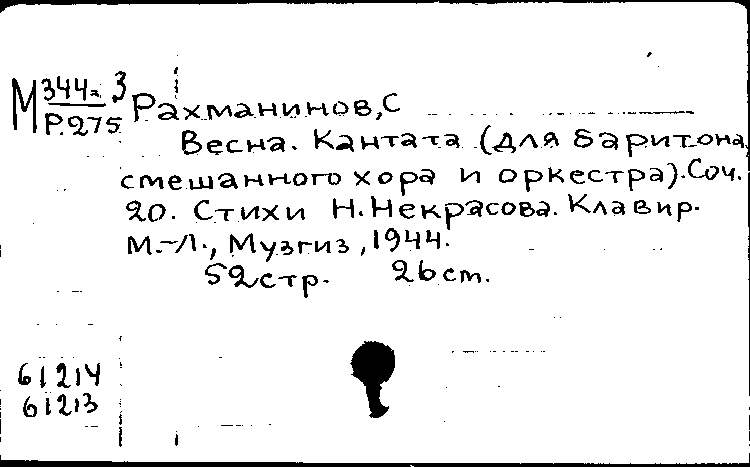 М 344-3
Р.275
Рахманинов, С
Весна. Кантата (для баритона,
смешанного хора и оркестра). Соч.
20. Стихи Н. Некрасова. Клавир.
М.-Л., Музгиз, 1944.
52 стр. 26 см.
61214
61213